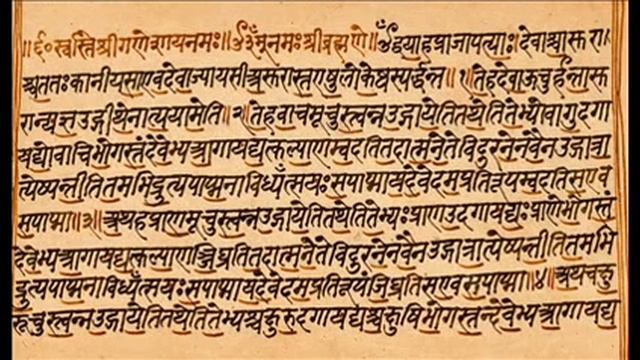 ॥६०स्वस्तिश्रीगणेशायनमः॥ॐनमःश्रीब्रह्मणे॥ॐद्वयाहप्राजापत्याः।देवाश्चासुरा
श्चततःकानीयसाएवदेवाज्यायसाअसुरास्तएषुलोकेष्वस्पर्द्धन्त॥१॥तेहदेवाऊचुर्हन्तासु
रान्यज्ञउद्गीथेनात्ययामेति॥२॥तेहवाचमूचुस्त्वन्नउद्गायेतितथेतितेभ्योवागुदगा
यद्योवाचिभोगस्तंदेवेभ्यआगायद्यत्कल्याणम्वदतितदात्मनेतेविदुरनेनवैनउद्गात्रा
त्येष्यन्तीतितमभिद्रुत्यपाप्मनाविध्यँत्सयःसपाप्मायदेवेदमप्रतिरूपम्वदतिसएव
सपाप्मा॥३॥अथहप्राणमूचुस्त्वन्नउद्गायेतितथेतितेभ्यःप्राणउदगायद्यःप्राणेभोगस्तं
देवेभ्यआगायद्यत्कल्याणञ्जिघ्रतितदात्मनेतेविदुरनेनवैनउद्गात्रात्येष्यन्तीतितमभि
द्रुत्यपाप्मनाविध्यँत्सयःसपाप्मायदेवेदमप्रतिरूपञ्जिघ्रतिसएवसपाप्मा॥४॥अथचक्षु
रूचुस्त्वन्नउद्गायेतितथेतितेभ्यश्चक्षुरुदगायद्यश्चक्षुषिभोगस्तन्देवेभ्यआगायद्य